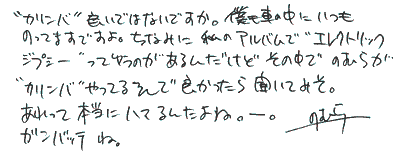 "カリンバ" 良いではないですか。僕も車の中にいつも
のってますですよ。ちなみに 私のアルバムで "エレクトリック
ジプシー" ってやつがあるんだけど その中で のむらが
"カリンバ" やってるんで 良かったら 聞いてみそ。
あれって 本当に ハマるんだよね。ー。
ガンバッテ ね。 のむら